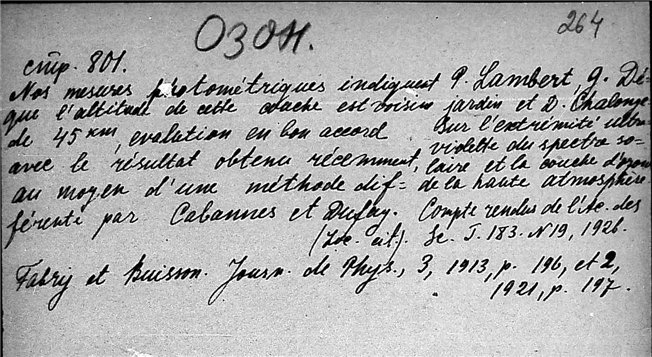 Озон.
264
стр. 801.
Nos mesures photométriques indiquent
que l'altitude de cette couche est voisine
de 45 km, evalation en bon accord
avec le résultat obtenu récemment,
au moyen d'une méthode dif=
férente par Cabannes et Dufay.
(Loc. cit).
P. Lambert, G. Dé-
jardin et D. Chalonge
Sur l'extrémité ultra-
violette du spectre so-
laire et la couche d'ozone
de la haute atmosphère
Compte rendus de l'Ac. des
Sc. T. 183. N19, 1926.
Fabry et Buisson. Journ. de Phys., 3, 1913, p. 196, et 2,
1921, p. 197.